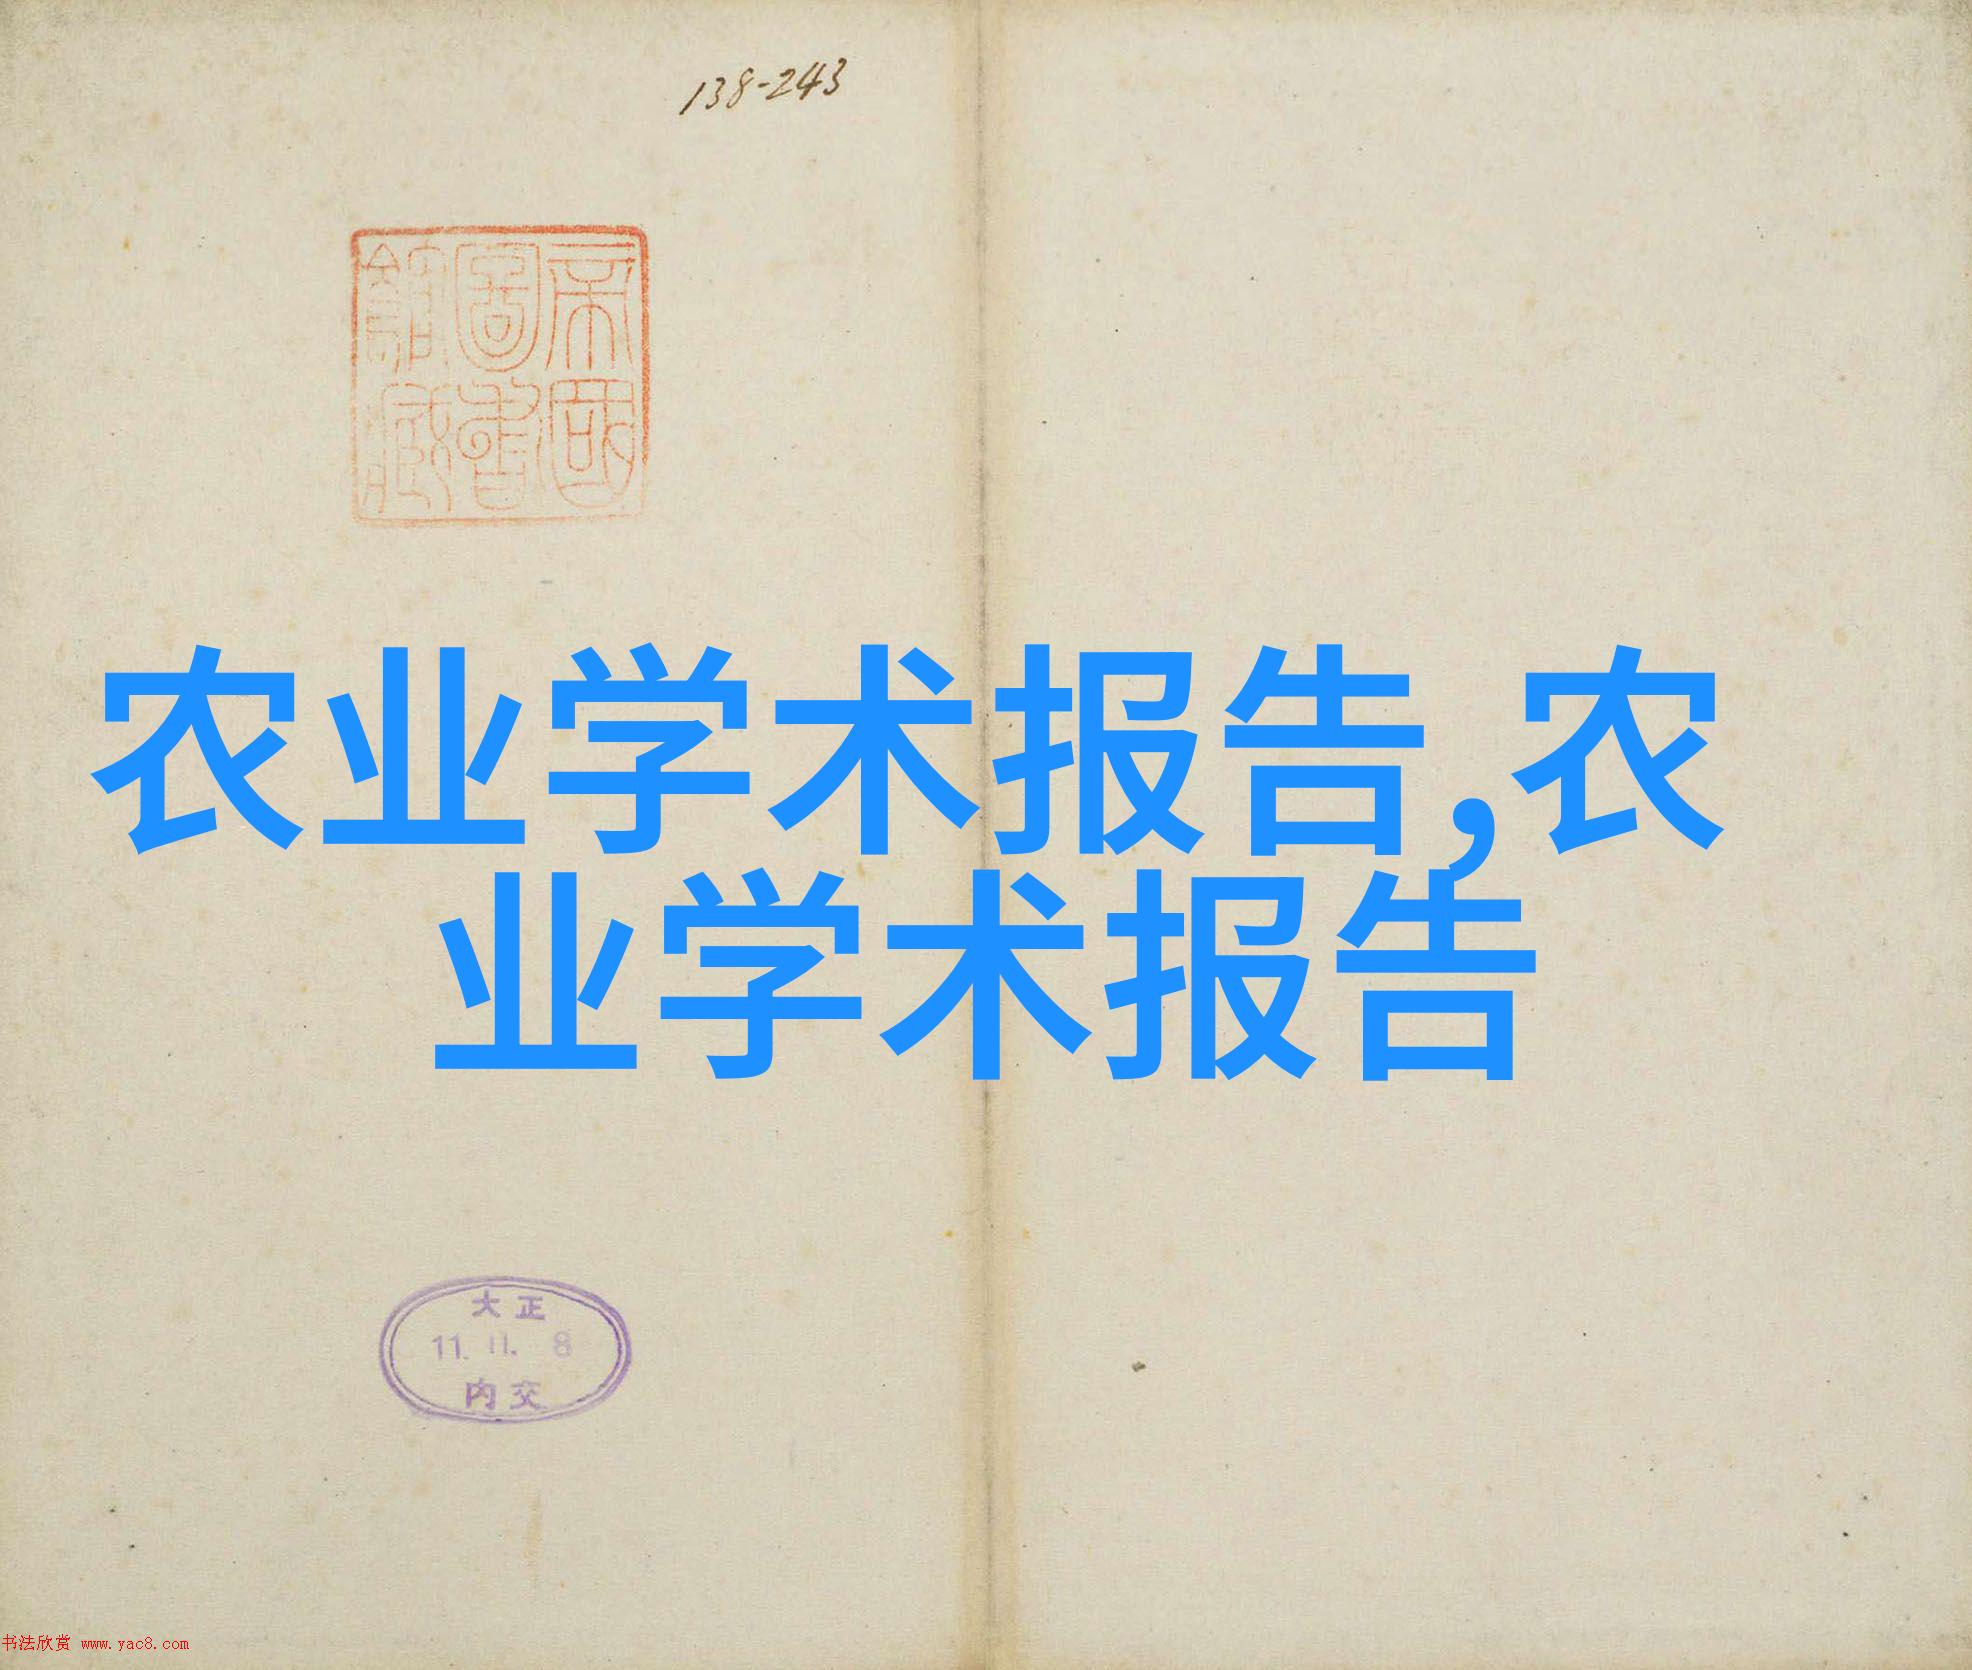 138-243
帝國
圖書
館藏
农业学术报告,农
业学术报告
大正
11.11.8
内交
书法欣赏 www.yac8.com